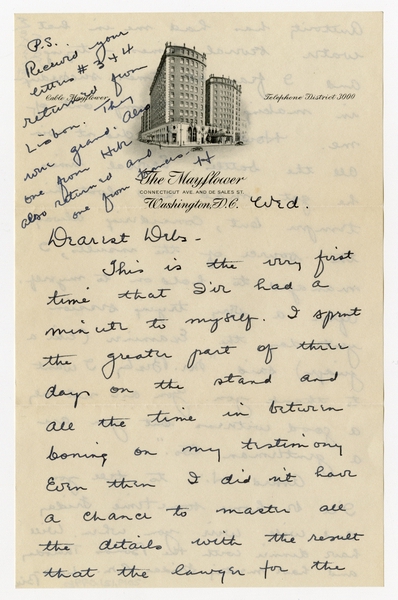 P.S.
Received your
letters # 3 + 4
returned from
Lisbon. They
were grand. Also
one from Hibs
also returned and
one from
H
Cable Mayflower
Telephone District 3000
The Mayflower
CONNECTICUT AVE. AND DE SALES ST.
Washington, D.C.
Wed.
Dearest Debs -
This is the very first
time that I've had a
minute to myself. I spent
the greater part of three
days on the stand and
all the time in between
boning on my testimony
Even then I didn't have
a chance to master all
the details with the result
that the lawyer for the